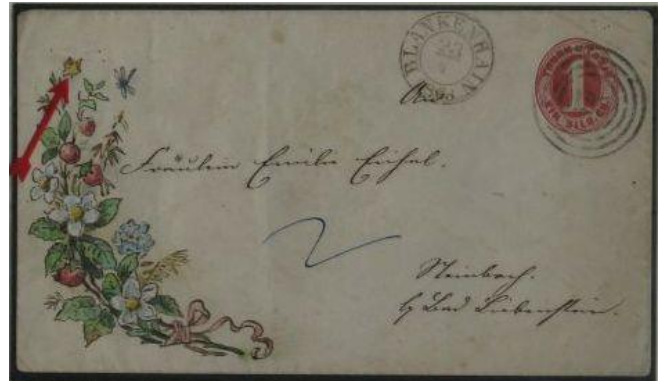 BLANKENHAIN
23
1
EIN. SILB. GR.
An
Fräulein Emilie Eichel.
2
Steinbach.
b/ Bad Liebenstein.